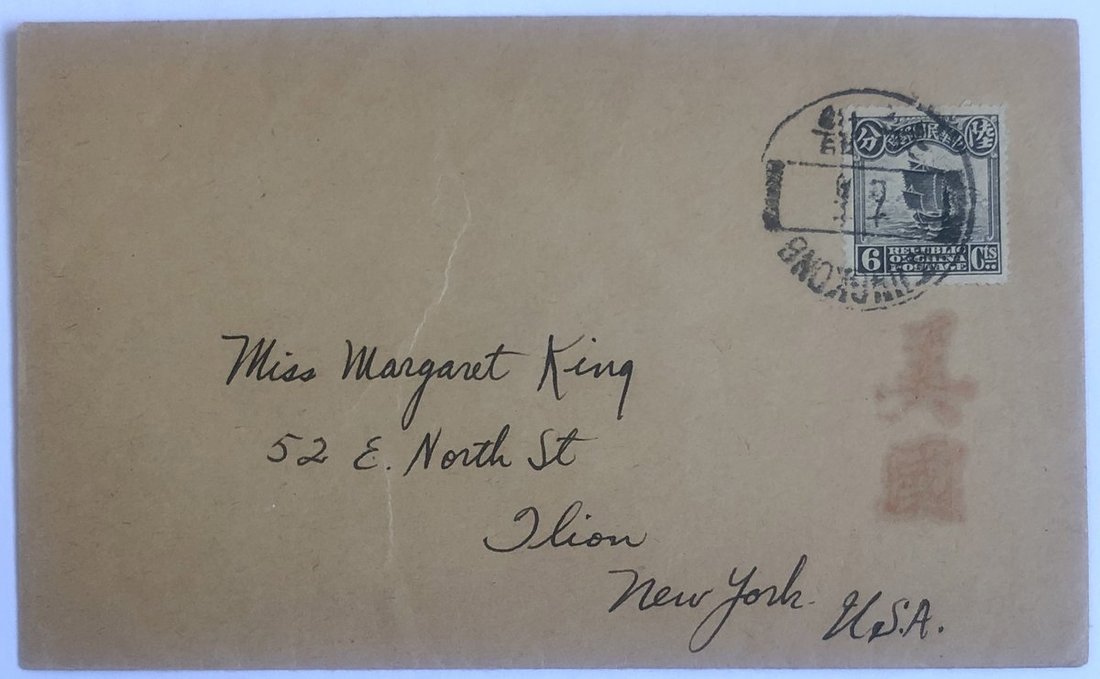 分
陸
6
REPUBLIC
OF CHINA
POSTAGE
Cts
美
國
Miss Margaret King
52 E. North St
Ilion
New York.
U.S.A.